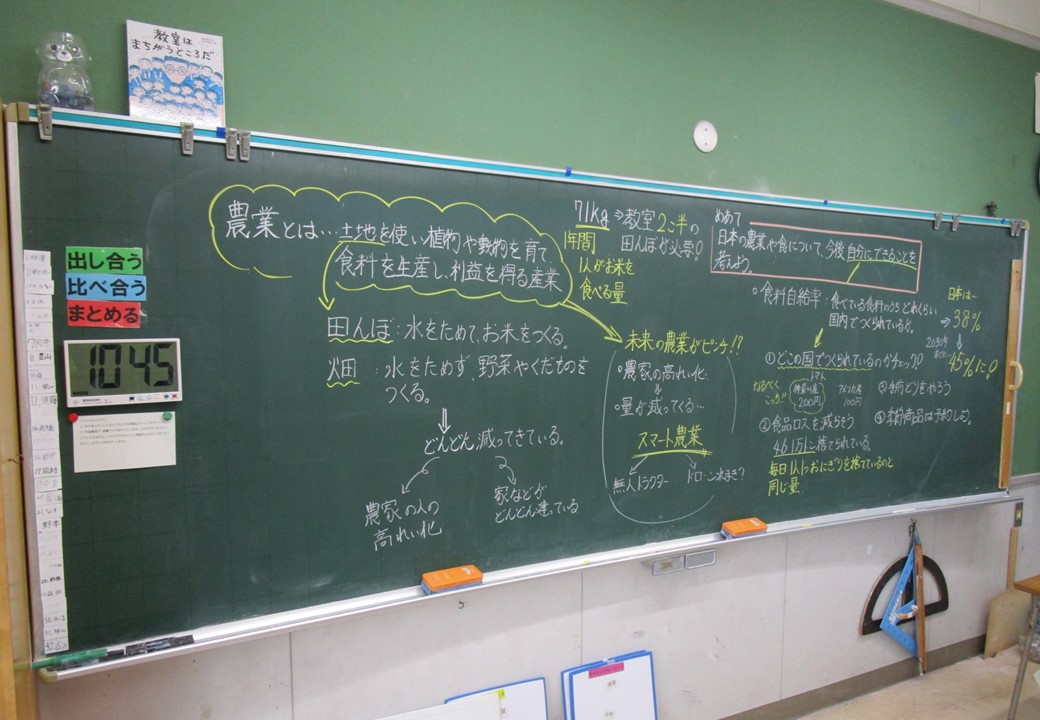 教室は
まちがうところだ
農業とは…土地を使い植物や動物を育て、
食料を生産し、利益を得る産業
田んぼ：水をためて、お米をつくる。
畑：水をためず、野菜やくだものを
つくる。
どんどん減ってきている。
農家の人の
高れい化
家などが
どんどん建っている
出し合う
比べ合う
まとめる
10 45
71kg⇒教室2こ半の
田んぼが必要！
1年間
1人がお米を
食べる量
未来の農業がピンチ!?
○農家の高れい化
○量が減ってくる…
スマート農業
無人トラクター
ドローン水まき？
めあて
日本の農業や食について、今後自分にできることを
考えよう。
○食料自給率：食べている食料のうちどれくらい
国内でつくられているか。
日本は…
⇒38%
2030年
45%に！
①どこの国でつくられているのかチェック！
トマト
なるべく
200円
100円
②食品ロスを減らそう
461万t捨てられている。
毎日1人1つおにぎりを捨てているのと
同じ量
③手前どりをやろう
④季節商品は予約しよう。